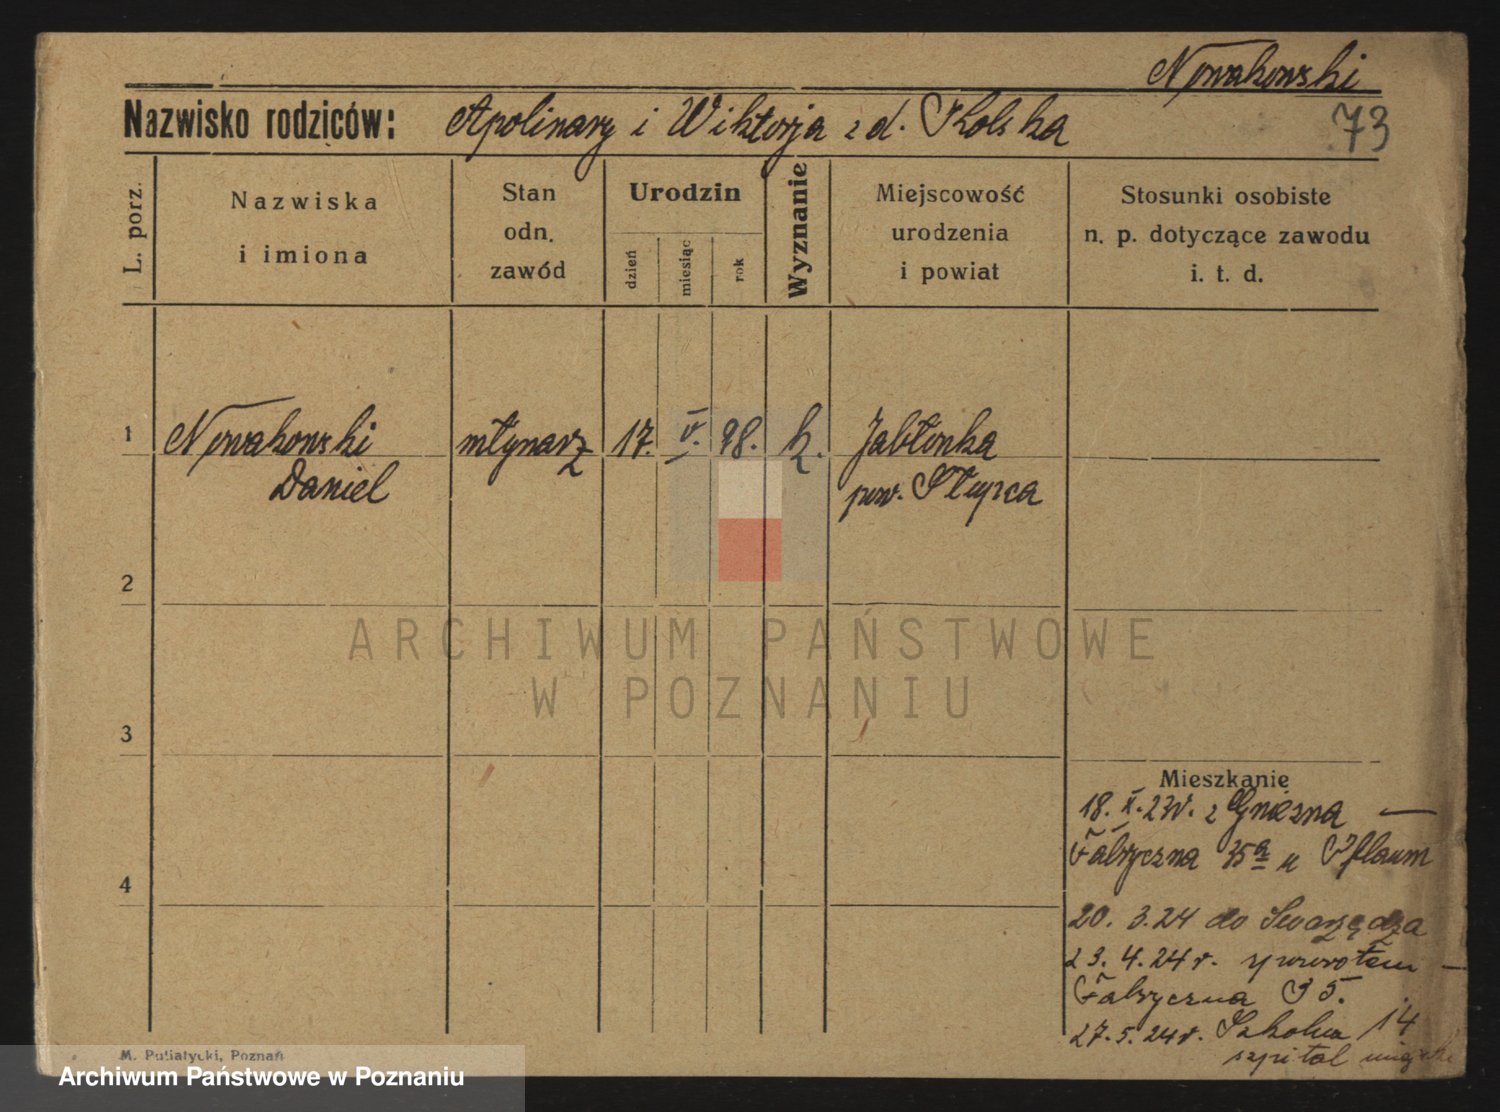 Nowakowski
Nazwisko rodziców: Apolinary i Wiktorja z d. Skolska
73
L. porz.
Nazwiska
i imiona
Stan
odn.
zawód
Urodzin
dzień
miesiąc
rok
Wyznanie
Miejscowość
urodzenia
i powiat
Stosunki osobiste
n. p. dotyczące zawodu
i. t. d.
1 Nowakowski młynarz 17. V. 98. k. Jabłonka
Daniel pow. Słupca
2
ARCHIWUM PAŃSTWOWE
W POZNANIU
3
Mieszkanie
18. X. 23r. z Gniezna —
Fabryczna 35a u Pflaum
4
20. 3. 24 do Swarzędza
23. 4. 24 r. spowrotem —
Fabryczna 35.
27. 5. 24 r. Szkolna 14
szpital
M. Putiatycki, Poznań
Archiwum Państwowe w Poznaniu